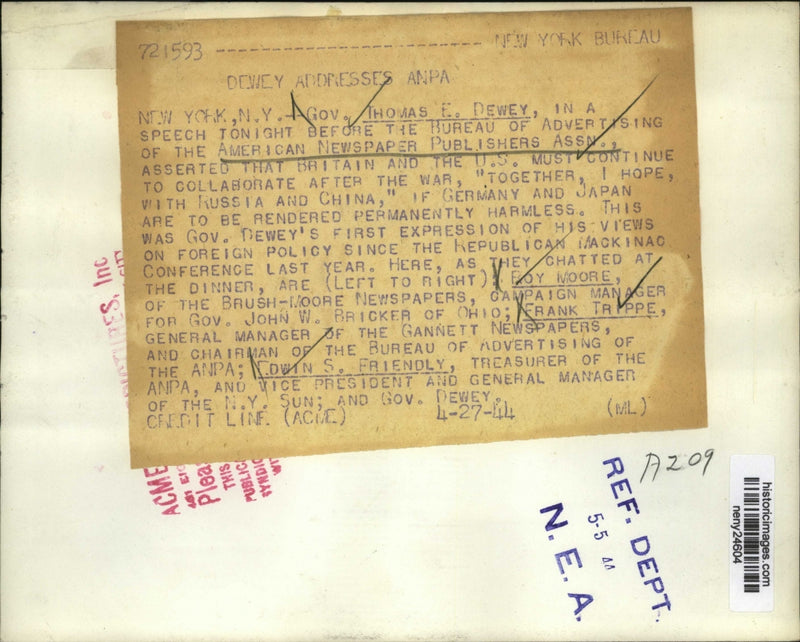 721593 ------------------------------ NEW YORK BUREAU
DEWEY ADDRESSES ANPA
NEW YORK, N.Y.-- GOV. THOMAS E. DEWEY, IN A
SPEECH TONIGHT BEFORE THE BUREAU OF ADVERTISING
OF THE AMERICAN NEWSPAPER PUBLISHERS ASSN.,
ASSERTED THAT BRITAIN AND THE U.S. MUST CONTINUE
TO COLLABORATE AFTER THE WAR, "TOGETHER, I HOPE,
WITH RUSSIA AND CHINA," IF GERMANY AND JAPAN
ARE TO BE RENDERED PERMANENTLY HARMLESS. THIS
WAS GOV. DEWEY'S FIRST EXPRESSION OF HIS VIEWS
ON FOREIGN POLICY SINCE THE REPUBLICAN MACKINAC
CONFERENCE LAST YEAR. HERE, AS THEY CHATTED AT
THE DINNER, ARE (LEFT TO RIGHT) ROY MOORE,
OF THE BRUSH-MOORE NEWSPAPERS, CAMPAIGN MANAGER
FOR GOV. JOHN W. BRICKER OF OHIO; FRANK TRIPPE,
GENERAL MANAGER OF THE GANNETT NEWSPAPERS,
AND CHAIRMAN OF THE BUREAU OF ADVERTISING OF
THE ANPA; EDWIN S. FRIENDLY, TREASURER OF THE
ANPA, AND VICE PRESIDENT AND GENERAL MANAGER
OF THE N.Y. SUN; AND GOV. DEWEY.
CREDIT LINE (ACME) 4-27-44 (ML)
, Inc
ACME
Pleas
THIS
PUBLIC
SYNDIC
WIT
A209
REF. DEPT.
5-5 44
N.E.A.
historicimages.com
neny24604